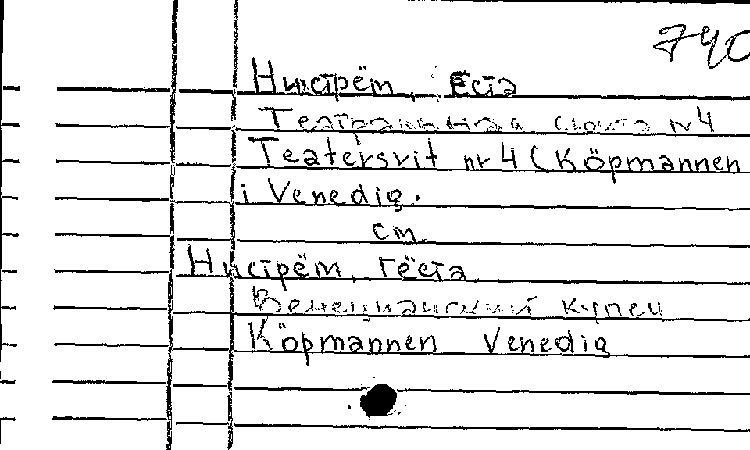 740
Нистрём, Ёста
Театральная сюита №4
Teatersvit nr 4 (Köpmannen
i Venedig.
см.
Нистрём, Гёста
Венецианский купец
Köpmannen Venedig